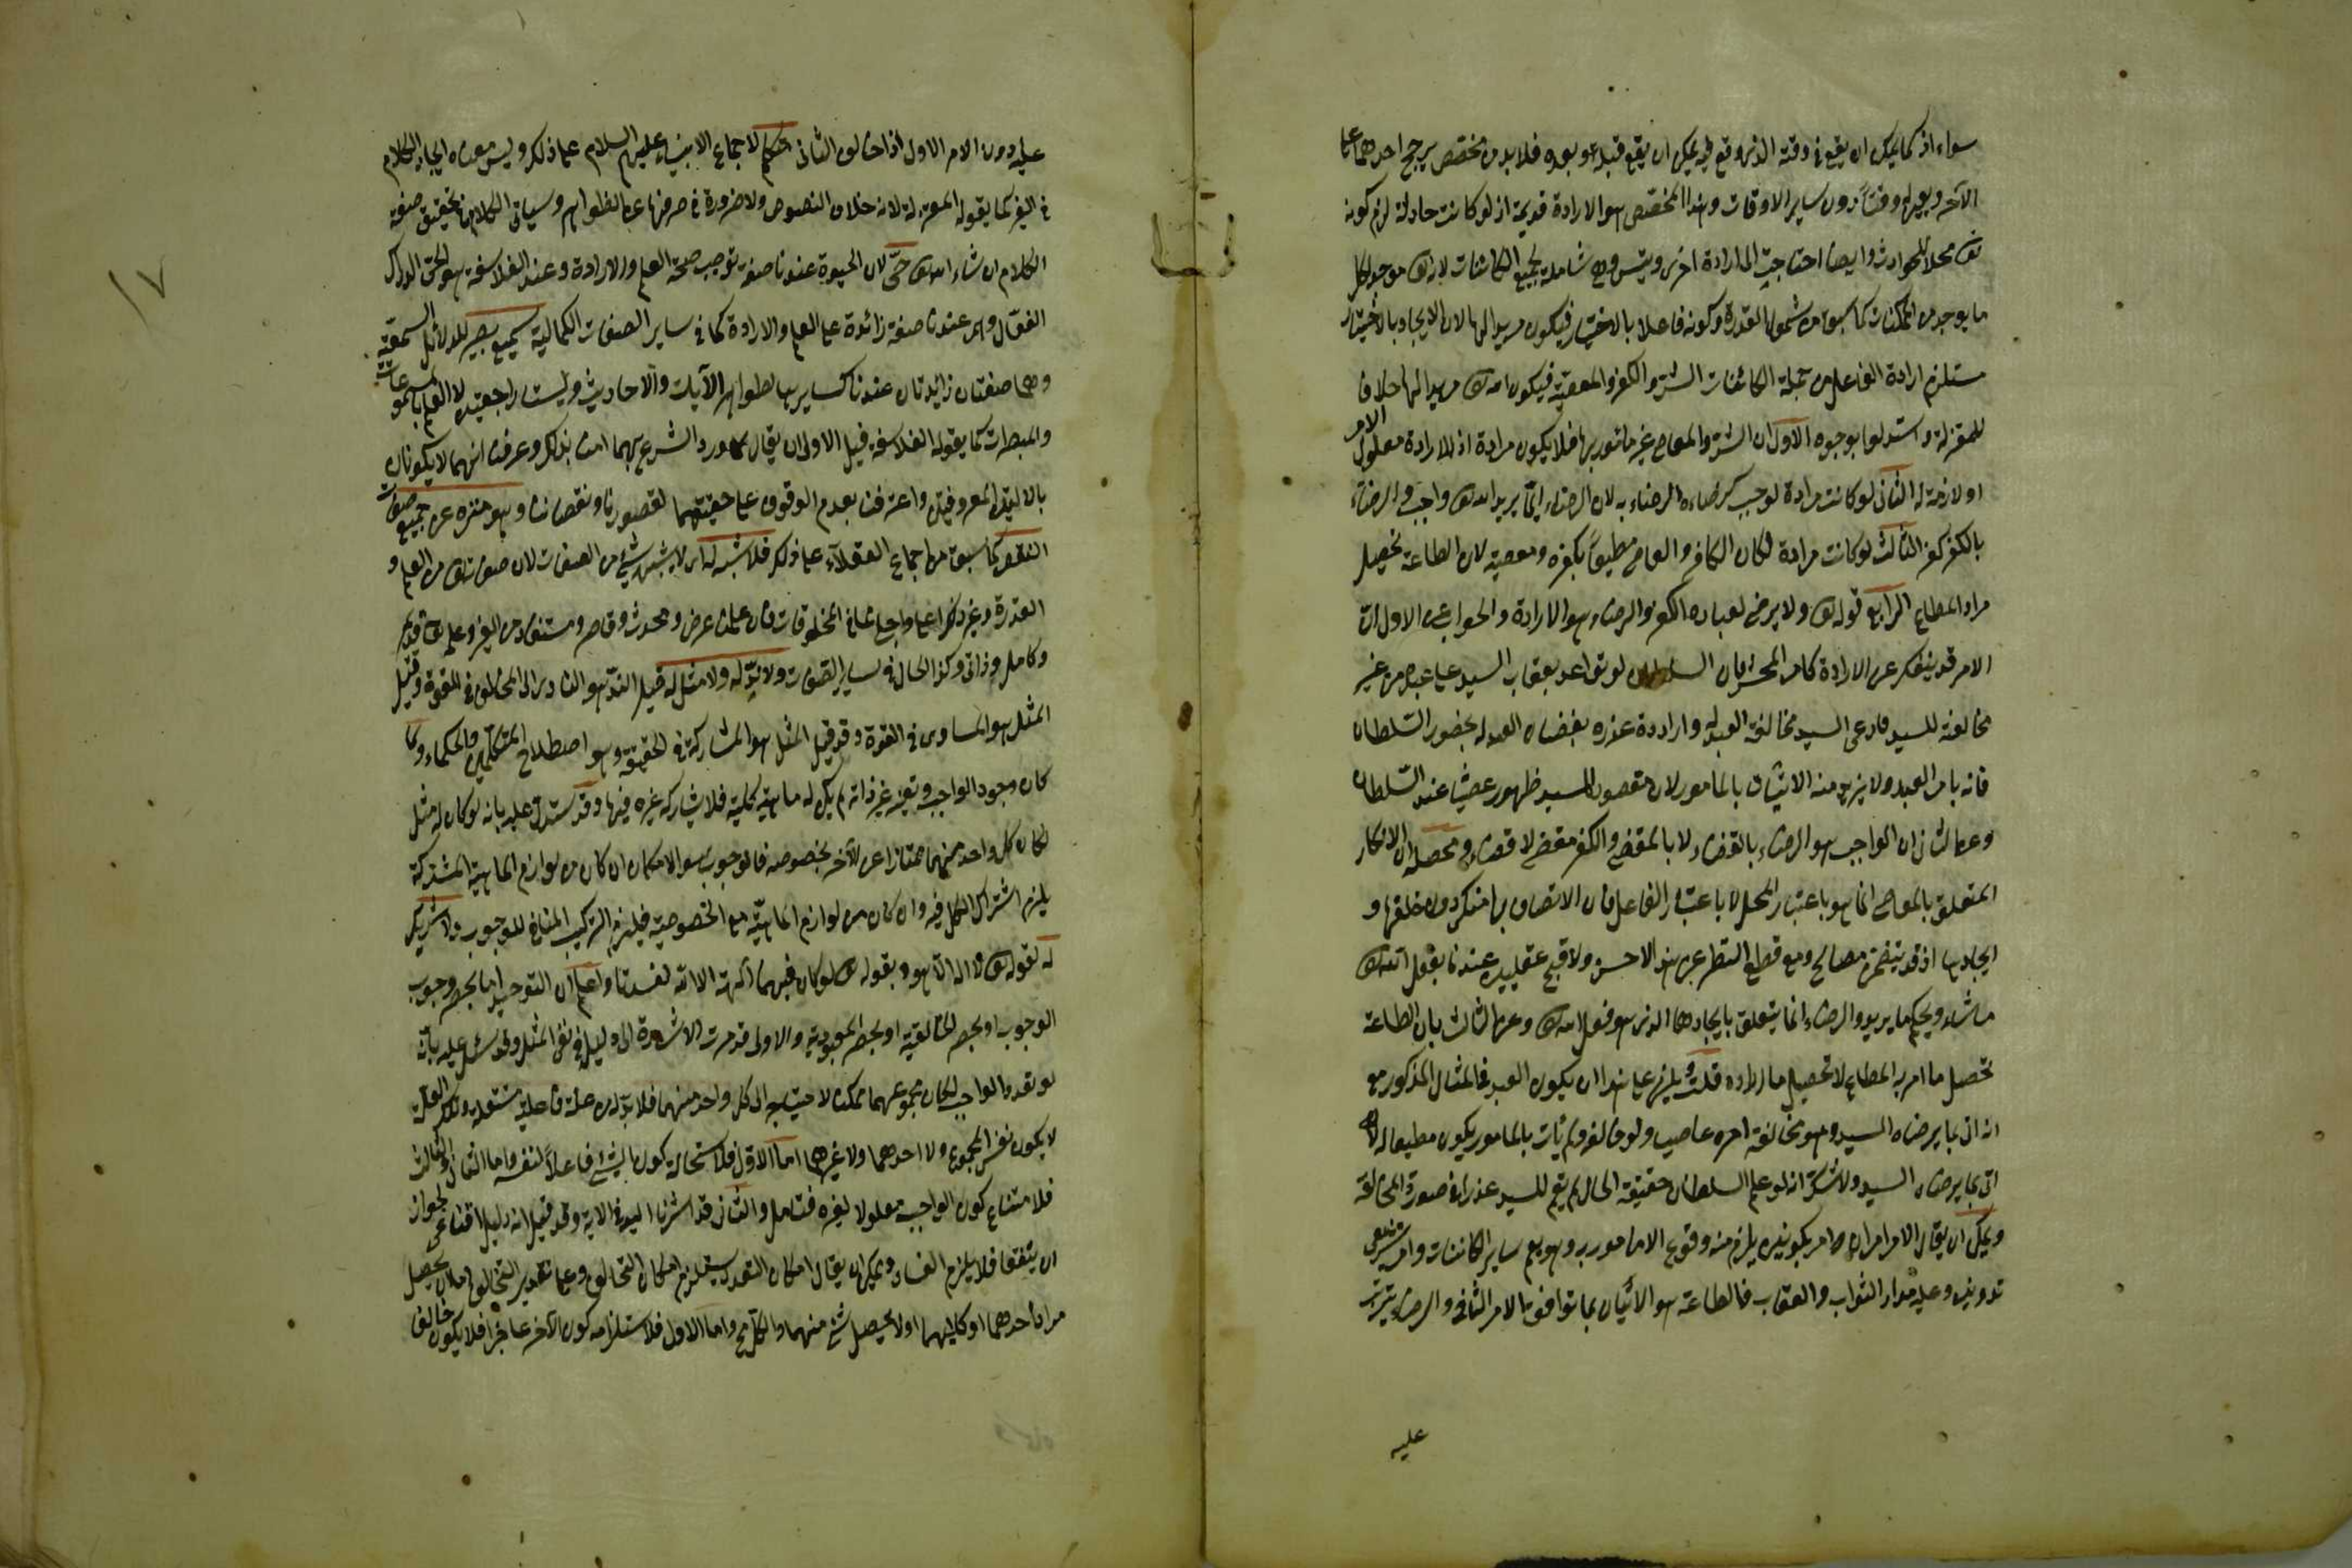 سواء اذ كما يمكن ان يقع فى وقته الذى وقع فيه يمكن ان يقع قبله او بعده فلا بد من مخصص يرجح احدهما على
الآخر ويعين له وقتا دون ساير الاوقات وهذا المخصص هو الارادة قديمة اذ لو كانت حادثة لزم كونه
تع محلا للحوادث وايضا احتاجت الى ارادة اخرى ويتس وهى شاملة لجميع الكائنات لانه تع موجد لكل
ما يوجد من الممكنات كما سبق من شمول القدرة وكونه فاعلا بالاختيار فيكون مريدا لها لان الايجاد بالاختيار
مستلزم ارادة الفاعل ومن جملة الكائنات الشر والكفر والمعصية فيكون الله تع مريدا لها خلافا
للمعتزلة واستدلوا بوجوه الاول ان الشر والمعاصى غير مأمور بها فلا يكون مرادة اذ الارادة مدلول الامر
او لازمة له الثانى لو كانت مرادة لوجب الرضاء به لان الرضاء بما يريد الله تع واجب والرضاء
بالكفر كفر الثالث لو كانت مرادة لكان الكافر والعاصى مطيعا بكفره ومعصيته لان الطاعة تحصيل
مراد المطاع الرابع قوله تع ولا يرضى لعباده الكفر والرضاء هو الارادة والجواب عن الاول ان
الامر قد ينفك عن الارادة كامر المختبر فان السلطان لو توعد بعقاب السيد على ضرب عبده من غير
مخالفة للسيد فادعى السيد مخالفة العبد له واراد تمهيد عذره بعصيان العبد له بحضور السلطان
فانه يامر العبد ولا يريد منه الاتيان بالمامور لان مقصود السيد ظهور عصيانه عند السلطان
وعن الثانى ان الواجب هو الرضاء بالقضاء لا بالمقضى والكفر مقضى لا قضاء ومحصله ان الانكار
المتعلق بالمعاصى انما هو باعتبار المحل لا باعتبار الفاعل فان الاتصاف بها منكر دون خلقها و
ايجادها اذ قد يتضمن مصالح ومع قطع النظر عن هذا لا حسن ولا قبح عقليين عندنا يفعل الله تع
ما يشاء ويحكم ما يريد والرضاء انما يتعلق بايجادها الذى هو فعل الله تع وعن الثالث بان الطاعة
تحصيل ما امر به المطاع لا تحصيل ما اراده قلت ويلزم على هذا ان يكون العبد فى المثال المذكور مع
انه اتى بما يرضاه السيد وهو مخالفة امره عاصيا ولو خالفه ولم يأت بالمامور يكون مطيعا له لانه
اتى بما يرضاه السيد ولا شك انه لو علم السلطان حقيقة الحال لم يقم للسيد عذر فى صورة المخالفة
ويمكن ان يقال الامر امران امر تكوينى يلزم منه وقوع المامور به وهو يعم ساير الكائنات وامر تشريعى
تدوينى وعليه مدار الثواب والعقاب فالطاعة هو الاتيان بما توافق الامر الثانى والرضاء يترتب
عليه
١٧
عليه دون الامر الاول اذا خالف الثانى متكلم لاجماع الانبياء عليهم السلام على ذلك وليس معناه ايجاد الكلام
فى الغير كما يقوله المعتزلة لانه خلاف النصوص ولا ضرورة فى صرفها عن الظواهر وسياتى الكلام فى تحقيق صفة
الكلام ان شاء الله تع حى لان الحيوة عندنا صفة توجب صحة العلم والارادة وعند الفلاسفة هو الحى الدراك
الفعال وهى عندنا صفة زائدة على العلم والارادة كما فى ساير الصفات الكمالية سميع بصير للدلائل السمعية
وهما صفتان زائدتان عندنا كسايرها لظواهر الآيات والاحاديث وليستا راجعتين الى العلم بالمسموعات
والمبصرات كما يقوله الفلاسفة قيل الاولى ان يقال لما ورد الشرع بهما امنا بذلك وعرفنا انهما لا يكونان
بالالتين المعروفتين واعترفنا بعدم الوقوف على حقيقتهما لقصورنا ونقصاننا وهو منزه عن جميع صفات
النقص كما سبق من اجماع العقلاء على ذلك فلا شبه له اى لا يشبهه شىء من الصفات لان صفاته تع من العلم و
القدرة وغير ذلك اعلى واجل مما فى المخلوقات فان علمنا عرض ومحدث وقاصر ومستفاد من الغير وعلمه تع قديم
وكامل وذاتى وكذا الحال فى ساير الصفات ولا ند له ولا مثل له قيل الند هو المنادى المخالف فى القوة وقيل
المثل هو المساوى فى القوة وقد قيل المثل هو المشارك فى الحقيقة وهو اصطلاح المتكلمين والحكماء ولما
كان وجود الواجب وتعينه غير ذاته لم يكن له ماهية كلية فلا يشاركه غيره فيها وقد يستدل عليه بانه لو كان له مثل
لكان كل واحد منهما ممتازا عن الآخر بخصوصه فالوجوب والامكان ان كان من لوازم الماهية المشتركة
يلزم اشتراك الكل فيه وان كان من لوازم الماهية مع الخصوصية فيلزم التركيب المنافى للوجوب ولا شريك
له لقوله تع لا اله الا هو وبقوله تع لو كان فيهما آلهة الا الله لفسدتا واعلم ان التوحيد اما بحصر وجوب
الوجود او بحصر الخالقية او بحصر المعبودية والاولى قد مرت الاشارة الى دليله فى نفى المثل وقد يستدل عليه بانه
لو تعدد الواجب لكان مجموعهما ممكنا لاحتياجه الى كل واحد منهما فلا بد له من علة فاعلية مستقلة وتلك العلة
لا يكون نفس المجموع ولا احدهما ولا غيرهما اما الاول فلاستحالة كون الشىء فاعلا لنفسه واما الثانى والثالث
فلامتناع كون الواجب معلولا لغيره فتامل والثانى قد اشرنا اليه فى الاية وقد قيل انه دليل اقناعى لجواز
ان يتفقا فلا يلزم الفساد ويمكن ان يقال امكان التعدد يستلزم امكان التخالف وعلى تقدير التخالف اما ان يحصل
مراد احدهما او كليهما او لا يحصل شىء منهما والكل مح واما الاول فلاستلزامه كون الآخر عاجزا فلا يكون خالقا